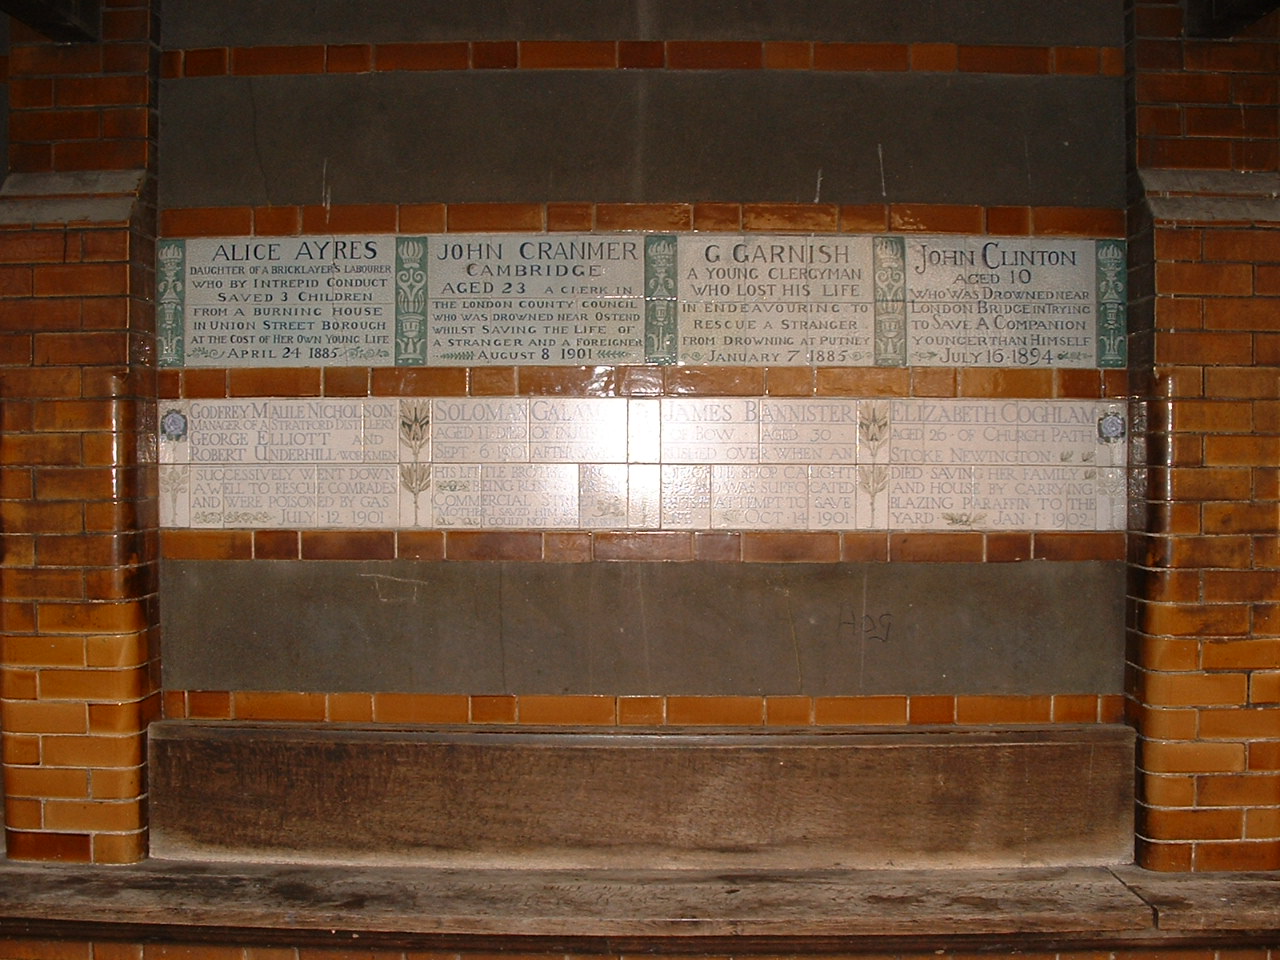 ALICE AYRES
DAUGHTER OF A BRICKLAYER'S LABOURER
WHO BY INTREPID CONDUCT
SAVED 3 CHILDREN
FROM A BURNING HOUSE
IN UNION STREET BOROUGH
AT THE COST OF HER OWN YOUNG LIFE
APRIL 24 1885
JOHN CRANMER
CAMBRIDGE
AGED 23 A CLERK IN
THE LONDON COUNTY COUNCIL
WHO WAS DROWNED NEAR OSTEND
WHILST SAVING THE LIFE OF
A STRANGER AND A FOREIGNER
AUGUST 8 1901
G GARNISH
A YOUNG CLERGYMAN
WHO LOST HIS LIFE
IN ENDEAVOURING TO
RESCUE A STRANGER
FROM DROWNING AT PUTNEY
JANUARY 7 1885
JOHN CLINTON
AGED 10
WHO WAS DROWNED NEAR
LONDON BRIDGE IN TRYING
TO SAVE A COMPANION
YOUNGER THAN HIMSELF
JULY 16 1894
GODFREY MAULE NICHOLSON
MANAGER OF A STRATFORD DISTILLERY
GEORGE ELLIOTT AND
ROBERT UNDERHILL WORKMEN
SUCCESSIVELY WENT DOWN
A WELL TO RESCUE COMRADES
AND WERE POISONED BY GAS
JULY 12 1901
SOLOMAN
AGED 11 DIED OF
SEPT 6 1901 AFTER
HIS LITTLE
BEING RUN
COMMERCIAL
MOTHER I SAVED HIM
COULD NOT SAVE
JAMES BANNISTER
OF BOW AGED 30
OVER WHEN AN
SHOP CAUGHT
WAS SUFFOCATED
ATTEMPT TO SAVE
OCT 14 1901
ELIZABETH COGHLAM
AGED 26 OF CHURCH PATH
STOKE NEWINGTON
DIED SAVING HER FAMILY
AND HOUSE BY CARRYING
BLAZING PARAFFIN TO THE
YARD JAN 1 1902